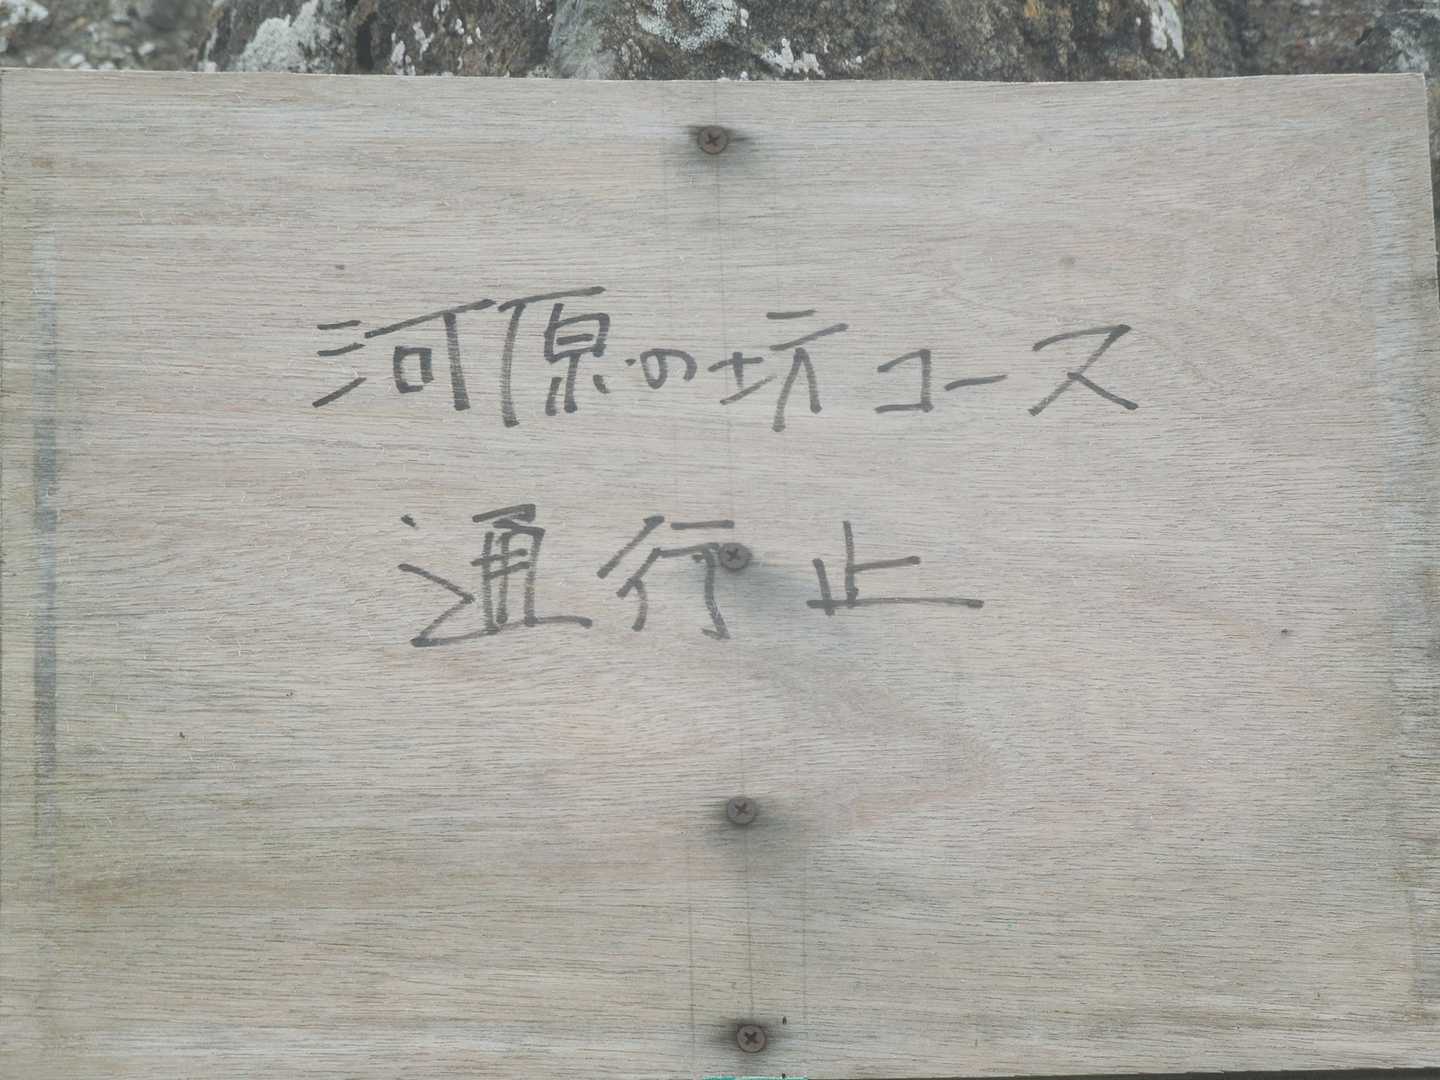 河原の坊コース
通行止